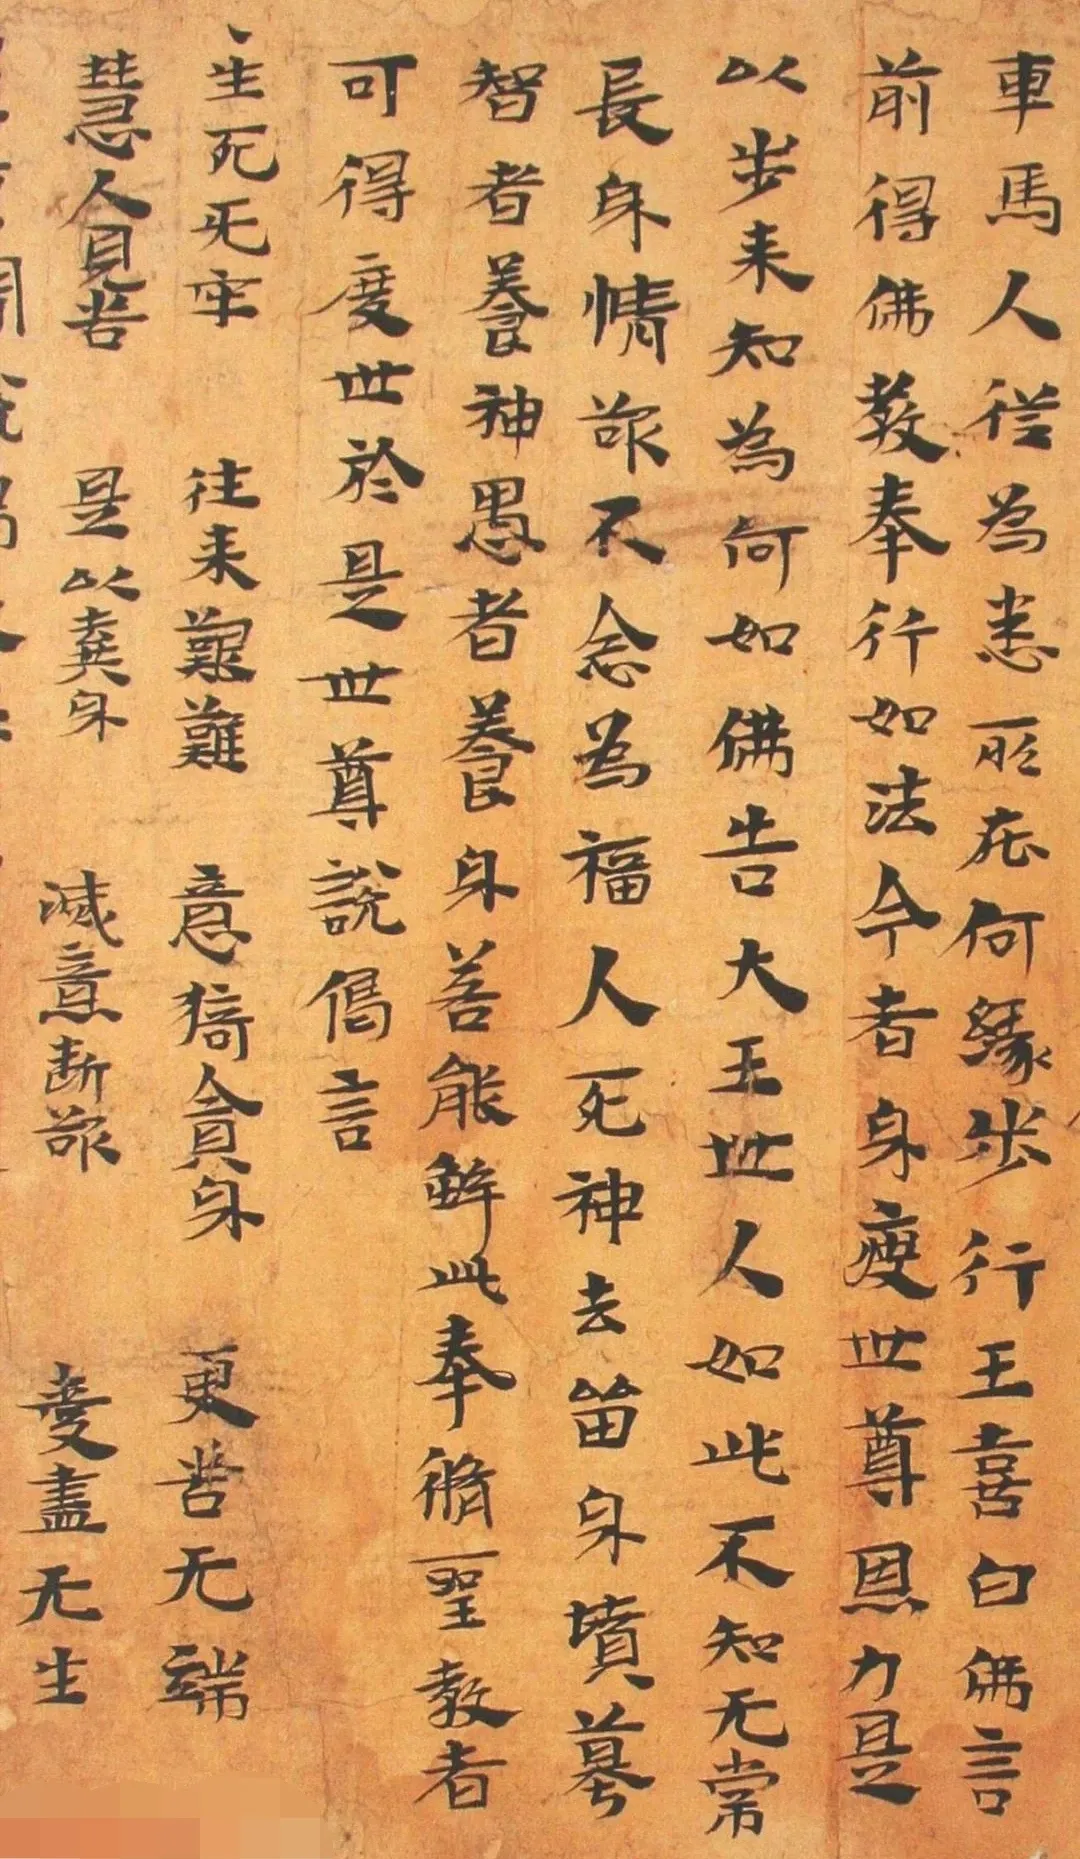 車馬人從為悉所在何緣步行王喜白佛言
前得佛教奉行如法今者身瘦世尊恩力是
以步来知為何如佛告大王世人如此不知无常
長身情欲不念為福人死神去留身墳墓
智者養神愚者養身若能解此奉脩聖教者
可得度世於是世尊說偈言
生死无牢 往来艱難 意猗貪身 更苦无端
慧人見苦 是以棄身 滅意斷欲 愛盡无生